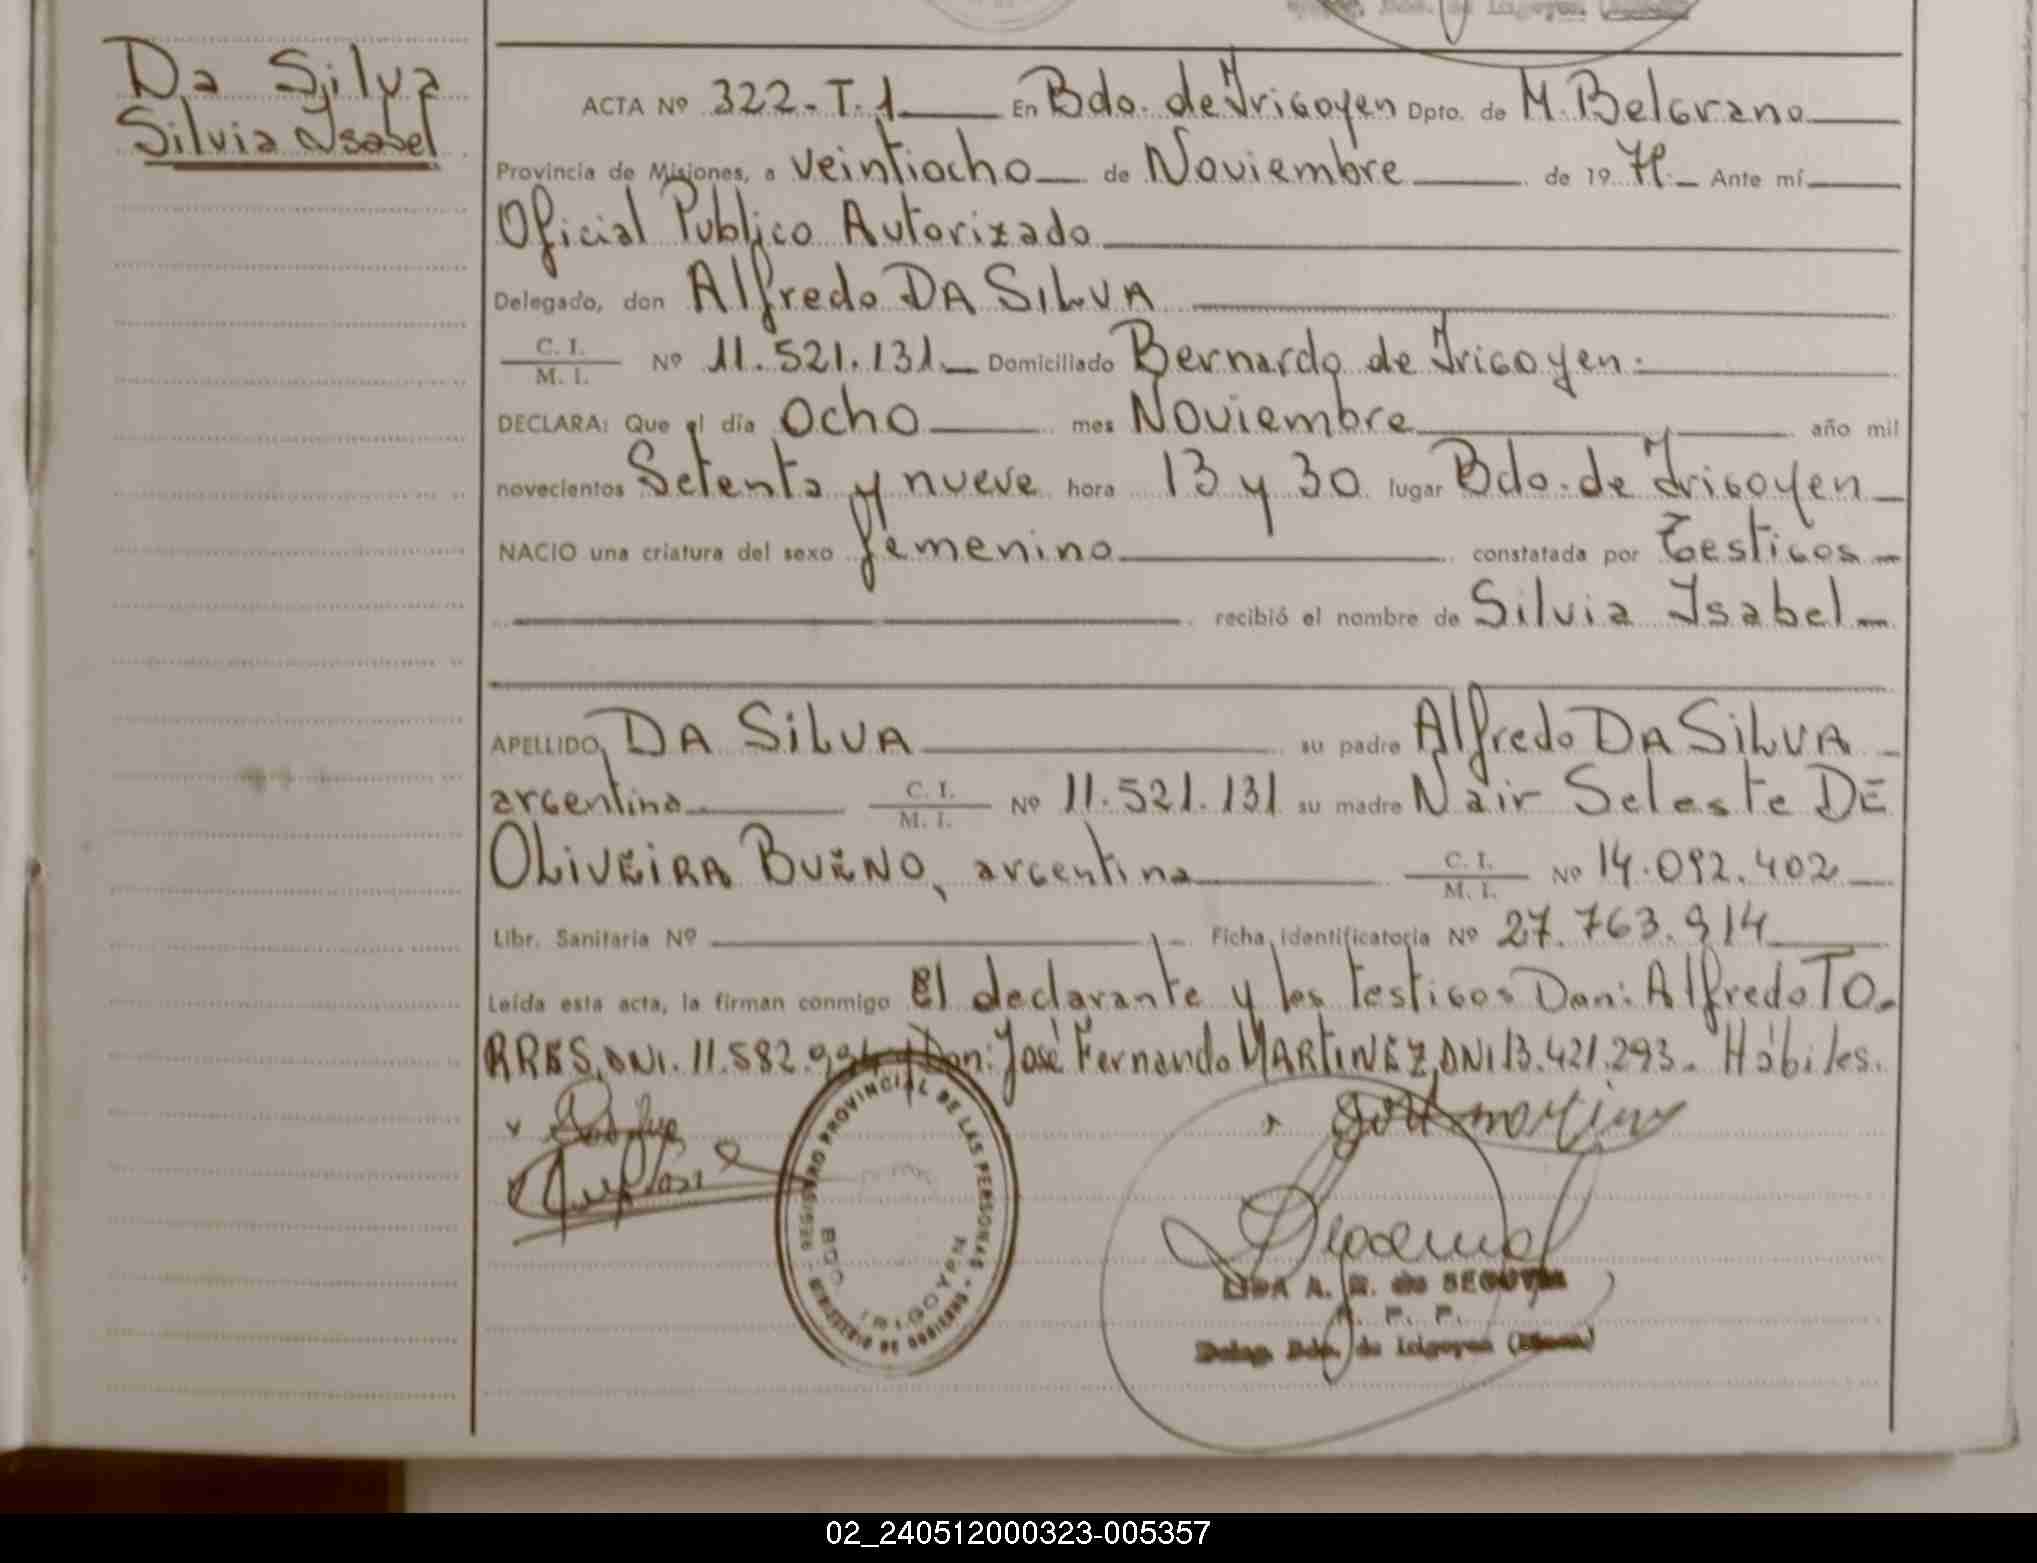 Da Silva
Silvia Ysabel
ACTA Nº 322-T.1 En Bdo. de Yrigoyen Dpto. de M. Belgrano
Provincia de Misiones, a veintiocho de Noviembre de 1979 Ante mí
Oficial Publico Autorizado
Delegado, don Alfredo DA SILVA
C. I.
M. I. Nº 11.521.131 Domiciliado Bernardo de Yrigoyen.
DECLARA: Que el día Ocho mes Noviembre año mil
novecientos Setenta y nueve hora 13 y 30 lugar Bdo. de Yrigoyen
NACIO una criatura del sexo femenino constatada por Testigos
recibió el nombre de Silvia Ysabel
APELLIDO DA SILVA su padre Alfredo DA SILVA
argentino C. I. M. I. Nº 11.521.131 su madre Nair Seleste DE
OLIVEIRA BUENO, argentina C. I. M. I. Nº 14.092.402
Libr. Sanitaria Nº Ficha identificatoria Nº 27.763.914
Leída esta acta, la firman conmigo El declarante y los testigos Don: Alfredo TO-
RRES, DNI. 11.582. y Don: José Fernando MARTINEZ, DNI 13.421.293. Hábiles.
REGISTRO PROVINCIAL DE LAS PERSONAS
MINISTERIO DE GOBIERNO
BDO. IRIGOYEN
LIDA A. R. de SEGOVIA
Deleg. Bdo. de Irigoyen (Mnes)
02_240512000323-005357